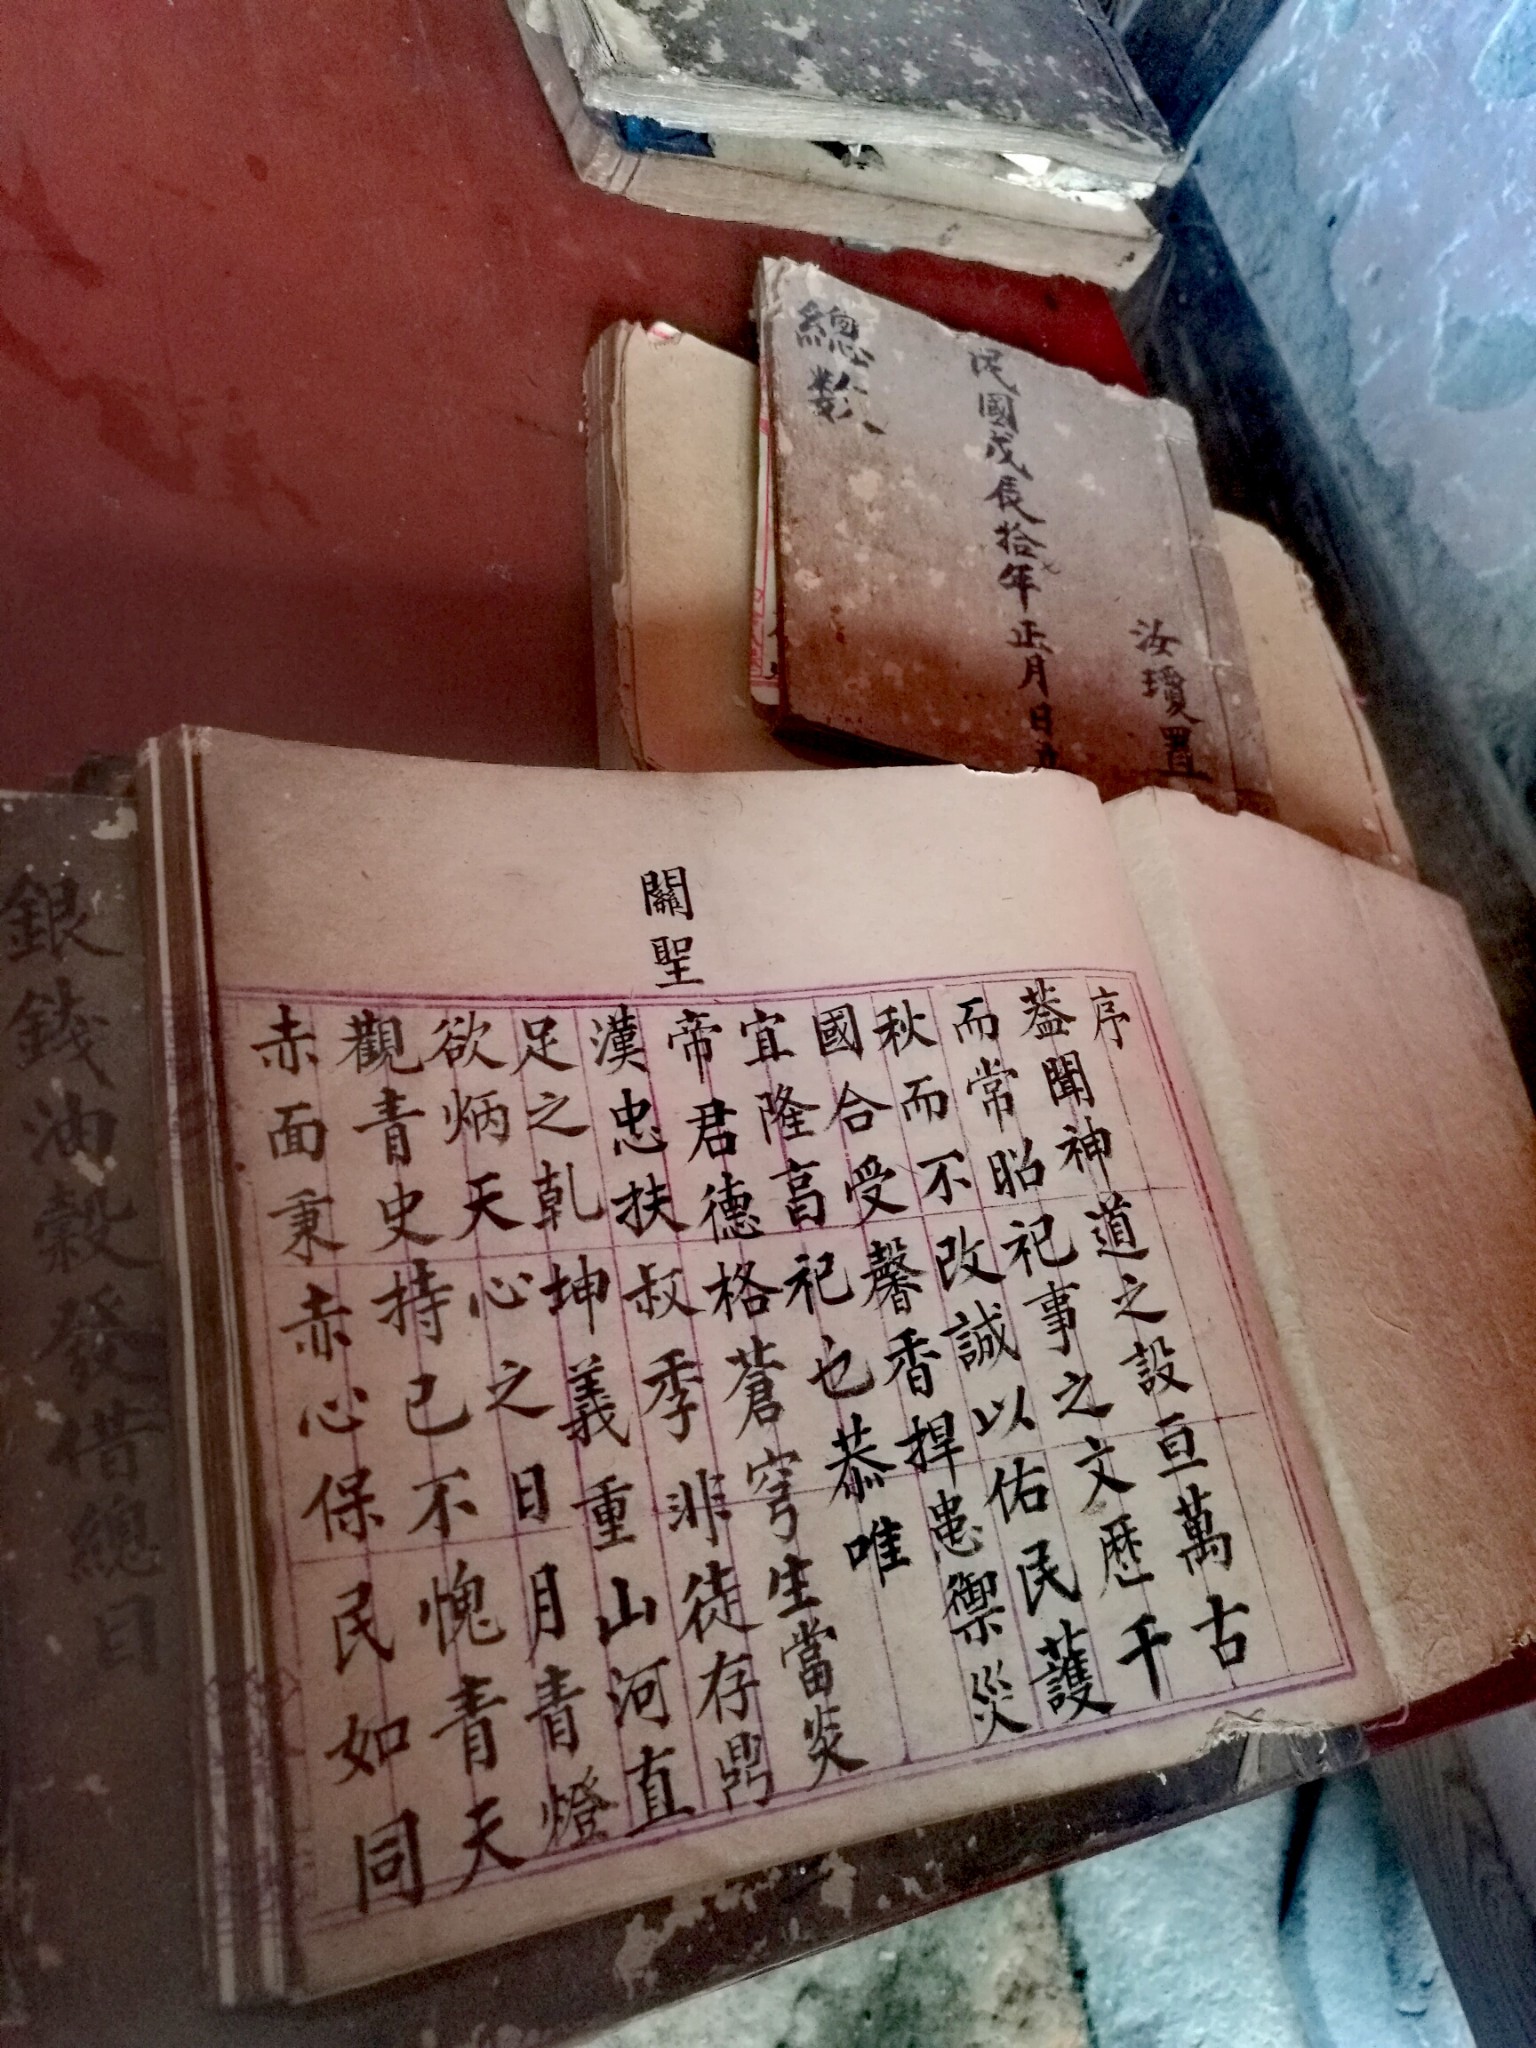 總数
民國戊辰拾七年正月日立
汝瓊置
序
葢聞神道之設亘萬古
而常昭祀事之文歷千
秋而不改誠以佑民護
國合受馨香捍患禦災
宜隆髙祀也恭唯
關聖
帝君德格蒼穹生當炎
漢忠扶叔季非徒存鼎
足之乾坤義重山河直
欲炳天心之日月青燈
觀青史持己不愧青天
赤面秉赤心保民如同
銀錢油穀發借總目